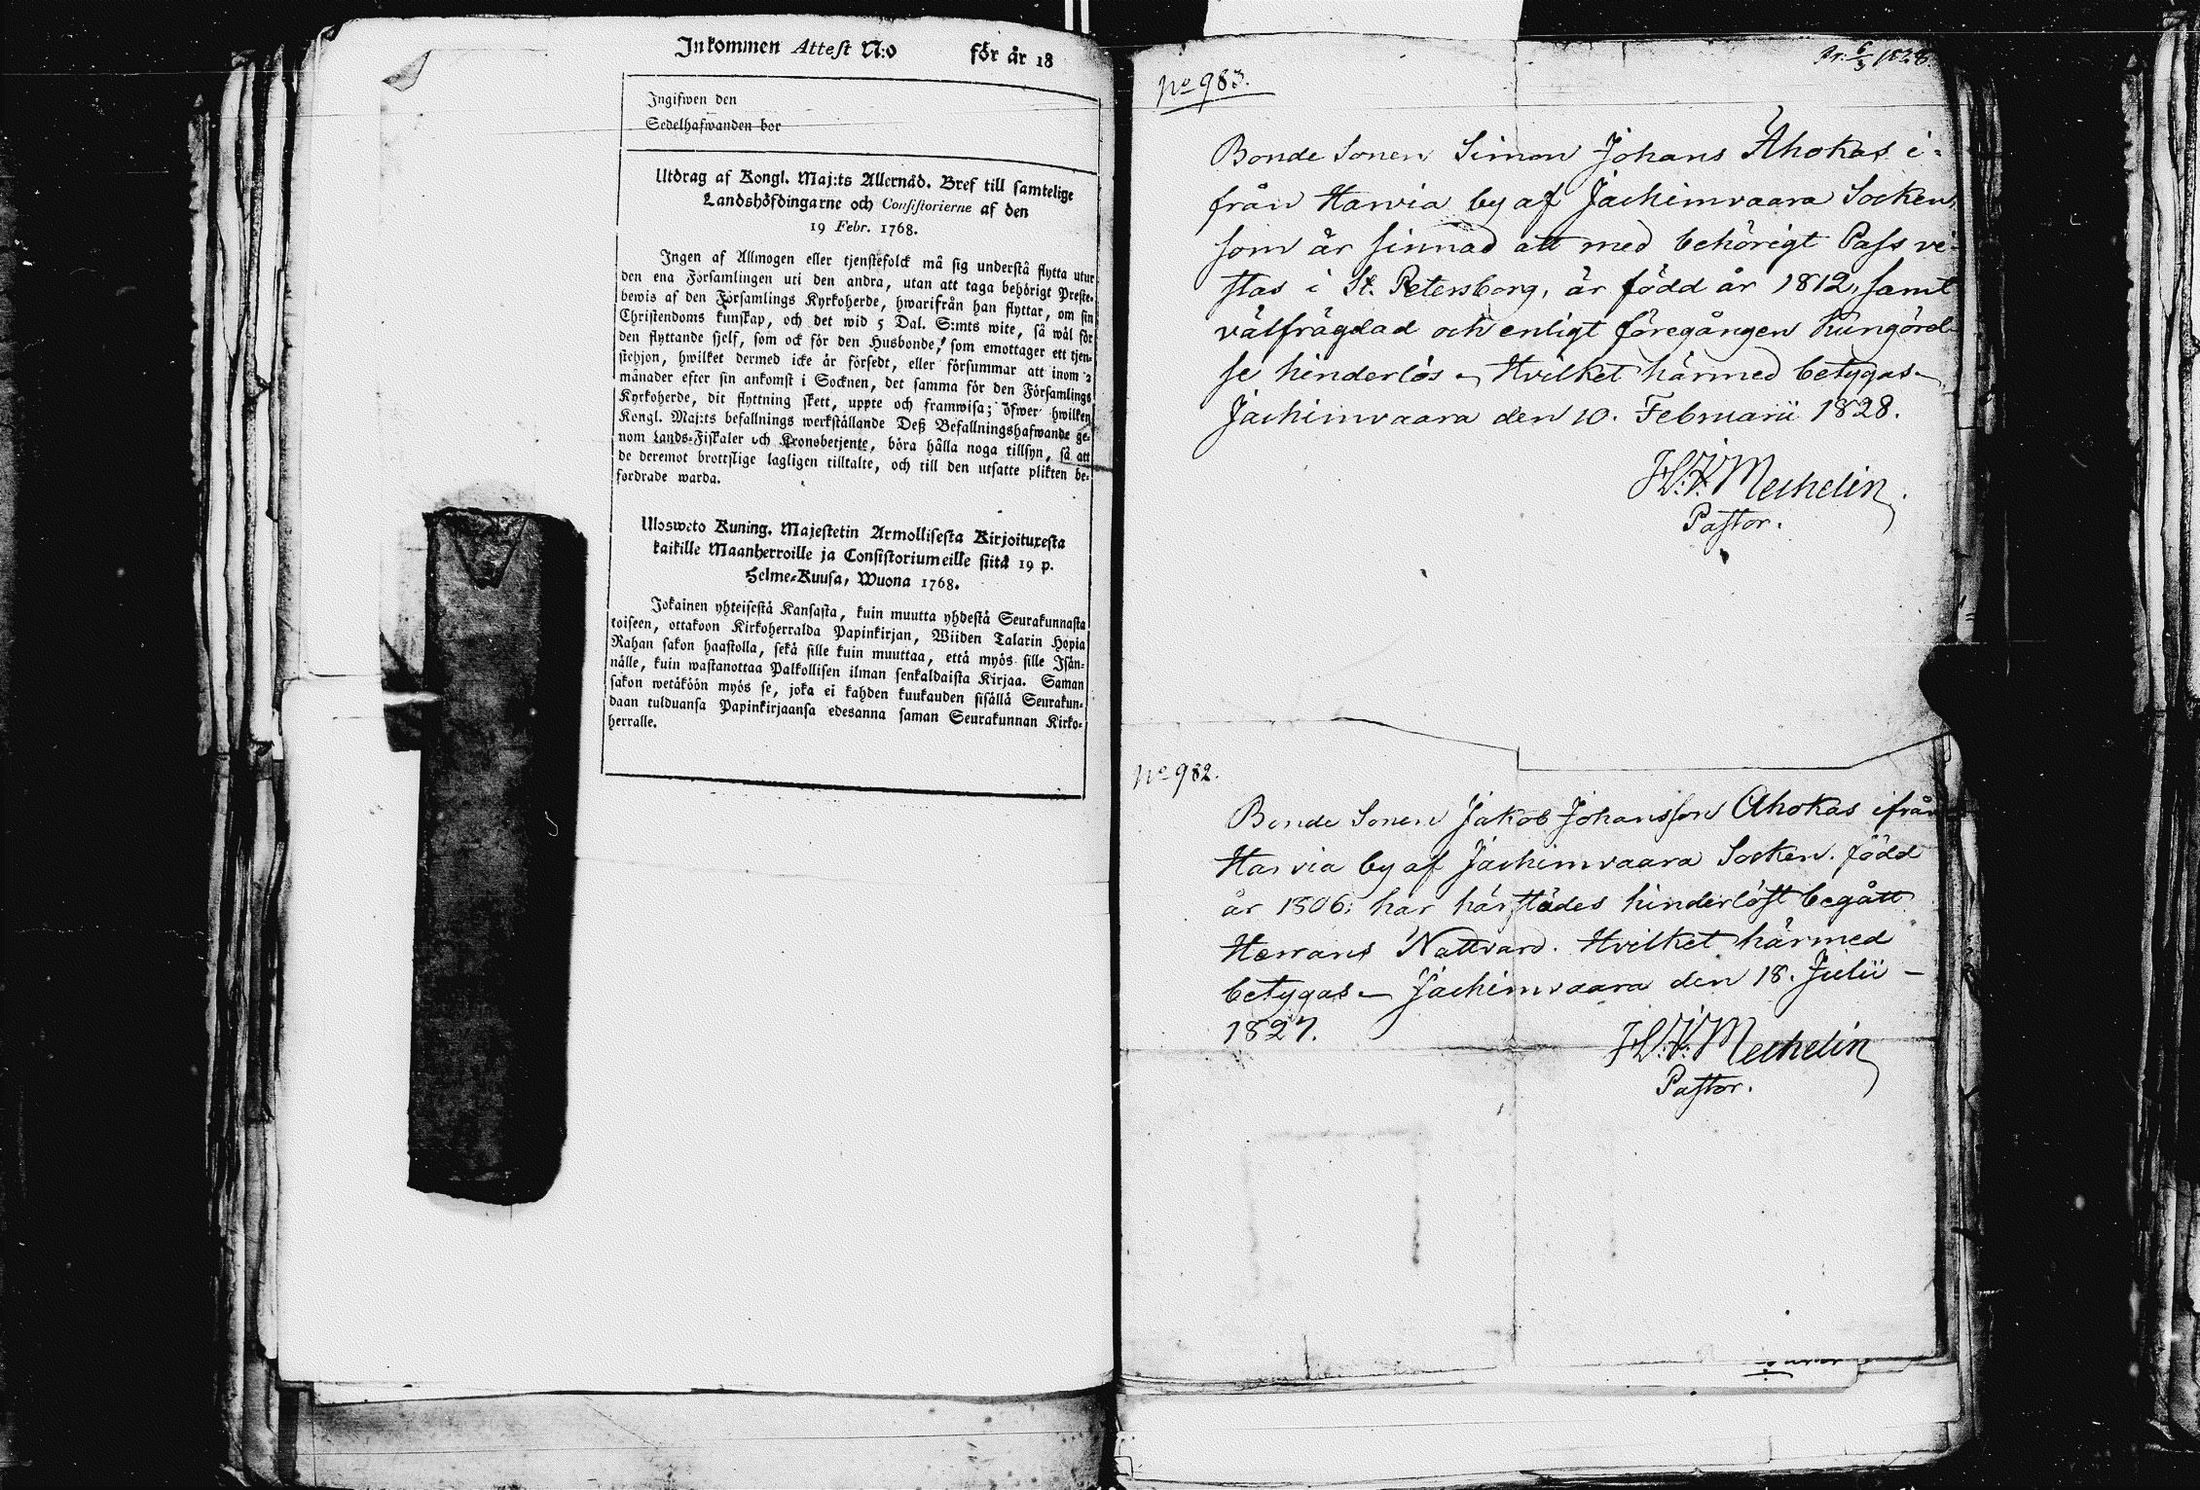 Inkommen Attest N:o för år 18
Ingifwen den
Sedelhafwanden bor
Utdrag af Kongl. Maj:ts Allernåd. Bref till samtelige
Landshöfdingarne och Consistorierne af den
19 Febr. 1768.
Ingen af Allmogen eller tjenstefolck må sig understå flytta utur
den ena Forsamlingen uti den andra, utan att taga behörigt Preste-
bewis af den Församlings Kyrkoherde, hwarifrån han flyttar, om sin
Christendoms kunskap, och det wid 5 Dal. S:mts wite, så wäl för
den flyttande sjelf, som ock för den Husbonde, som emottager ett tjen-
stehjon, hwilket dermed icke är försedt, eller försummar att inom 2
månader efter sin ankomst i Socknen, det samma för den Församlings
Kyrkoherde, dit flyttning skett, uppte och framwisa; öfwer hwilken
Kongl. Maj:ts befallnings werkställande Deß Befallningshafwande ge-
nom Lands-Fiskaler och Kronobetjente, böra hålla noga tillsyn, så att
de deremot brottslige lagligen tilltalte, och till den utsatte plikten be-
fordrade warda.
Ulosweto Kuning. Majestetin Armollisesta Kirjoituxesta
kaikille Maanherroille ja Consistoriumeille siitä 19 p.
Helme-Kuusa, Wuona 1768.
Jokainen yhteisestä Kansasta, kuin muutta yhdestä Seurakunnasta
toiseen, ottakoon Kirkoherralda Papinkirjan, Wiiden Talarin Hopia
Rahan sakon haastolla, sekä sille kuin muuttaa, että myös sille Isän-
nälle, kuin wastanottaa Palkollisen ilman senkaldaista Kirjaa. Saman
sakon wetäköön myös se, joka ei kahden kuukauden sisällä Seurakun-
daan tulduansa Papinkirjaansa edesanna saman Seurakunnan Kirko-
herralle.
6/3 1828.
No 983.
Bonde Sonen Simon Johans Ahokas i-
från Harvia by af Jachimvaara Socken,
som är sinnad att med behörigt Pass vi-
stas i St. Petersborg, är född år 1812, samt
välfrägdad och enligt föregången kungörel-
se hinderlös - Hvilket härmed betygas -
Jachimvaara den 10. Februarii 1828.
Mechelin.
Pastor.
No 982.
Bonde Sonen Jakob Johansson Ahokas ifrån
Harvia by af Jachimvaara Socken. född
år 1806: har härstädes hinderlöst begått
Herrans Nattvard. Hvilket härmed
betygas - Jachimvaara den 18. Julii -
1827.
Mechelin
Pastor.